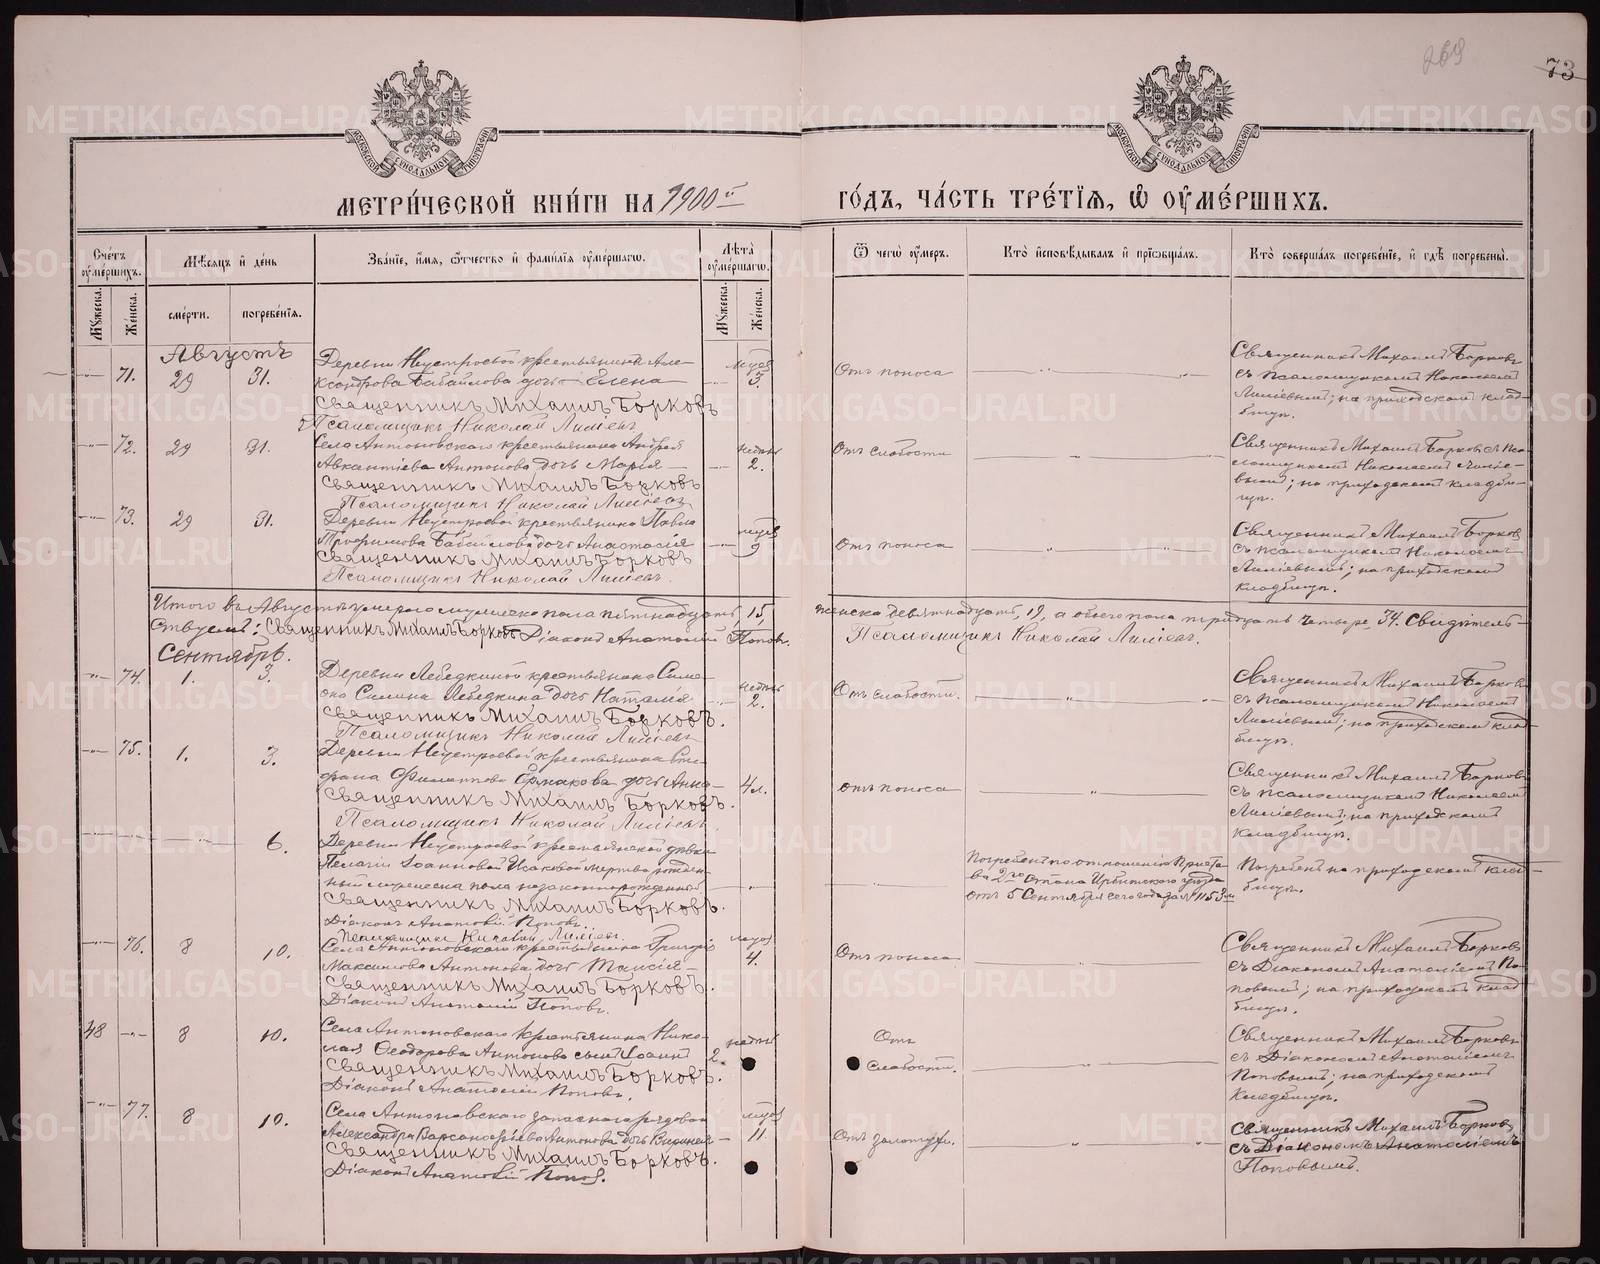 269
73
МОСКОВСКОЙ СУНОДАЛЬНОЙ ТИПОГРАФІИ
МОСКОВСКОЙ СУНОДАЛЬНОЙ ТИПОГРАФІИ
МЕТРИ́ЧЕСКОЙ КНИ́ГИ НА 1900й ГО́ДЪ, ЧА́СТЬ ТРЕ́ТІѦ, Ѡ҆ ОУ҆МЕ́РШИХЪ.
Сче́тъ оу҆ме́ршихъ.
Мꙋ́жеска.
Же́нска.
Мѣ́сяцъ и҆ де́нь
сме́рти.
погребе́нїѧ.
Зва́нїе, и҆́мѧ, ѻ҆́тчество и҆ фамилїѧ оу҆ме́ршагѡ.
Лѣ́та оу҆ме́ршагѡ.
Мꙋ́жеска.
Же́нска.
Ѿ чегѡ̀ оу҆́меръ.
Кто̀ и҆сповѣ́дывалъ и҆ прїѡбща́лъ.
Кто̀ соверша́лъ погребе́нїе, и҆ гдѣ̀ погребены̀.
Августъ
71. 29 31.
Деревни Неустроевой крестьянина Але-
ксандрова Бабайлова дочь Елена
Священникъ Михаилъ Борковъ
Псаломщикъ Николай Лиліевъ
3.
Отъ поноса
Священникъ Михаилъ Борковъ
съ псаломщикомъ Николаемъ
Лиліевымъ; на приходскомъ клад-
бищѣ.
72. 29 31.
Села Антоновскаго крестьянина Андрея
Антонова дочь Марія
Священникъ Михаилъ Борковъ
Псаломщикъ Николай Лиліевъ
недѣль
2.
Отъ слабости
Священникъ Михаилъ Борковъ съ пса-
ломщикомъ Николаемъ Лиліе-
вымъ; на приходскомъ кладби-
щѣ.
73. 29 31.
Деревни Неустроевой крестьянина Павла
Трофимова Бабайлова дочь Анастасія
Священникъ Михаилъ Борковъ
Псаломщикъ Николай Лиліевъ.
Отъ поноса
Священникъ Михаилъ Борковъ
съ псаломщикомъ Николаемъ
Лиліевымъ; на приходскомъ
кладбищѣ.
Итого въ Августѣ умерло мужеска пола пятнадцать, 15, женска девятнадцать, 19, а обоего пола тридцать четыре, 34. Свидѣтель-
ствуемъ: Священникъ Михаилъ Борковъ Діаконъ Анатолий Поповъ. Псаломщикъ Николай Лиліевъ.
Сентябрь.
74. 1. 3.
Деревни Лебедкиной крестьянина Симе-
она Силина Лебедкина дочь Наталія
Священникъ Михаилъ Борковъ.
Псаломщикъ Николай Лиліевъ
недѣль
2.
Отъ слабости.
Священникъ Михаилъ Борковъ
съ псаломщикомъ Николаемъ
Лиліевымъ; на приходскомъ клад-
бищѣ.
75. 1. 3.
Деревни Неустроевой крестьянина Сте-
фана Филиппова Ермакова дочь Анна
Священникъ Михаилъ Борковъ.
Псаломщикъ Николай Лиліевъ.
4 л.
отъ поноса
Священникъ Михаилъ Борковъ
съ псаломщикомъ Николаемъ
Лиліевымъ; на приходскомъ
кладбищѣ.
6.
Деревни Неустроевой крестьянской дѣвки
Пелагіи Іоанновой Исаковой мертворожден-
ный мужеска пола незаконнорожденный
Священникъ Михаилъ Борковъ.
Діаконъ Анатолий Поповъ.
Псаломщикъ Николай Лиліевъ.
Погребенъ по отношенію Приста-
ва 2го стана Ирбитского уѣзда
отъ 5 Сентября сего года за № 1153
Погребенъ на приходскомъ клад-
бищѣ.
76. 8 10.
Села Антоновскаго крестьянина Григорія
Максимова Антонова дочь Таисія
Священникъ Михаилъ Борковъ.
Діаконъ Анатолий Поповъ.
4.
Отъ поноса
Священникъ Михаилъ Борковъ
съ Діакономъ Анатоліемъ По-
повымъ; на приходскомъ клад
бищѣ.
48 8 10.
Села Антоновскаго крестьянина Нико-
лая Ѳеодорова Антонова сынъ Іоаннъ
Священникъ Михаилъ Борковъ.
Діаконъ Анатолий Поповъ.
недѣль
2.
Отъ
слабости.
Священникъ Михаилъ Борковъ
съ Діакономъ Анатоліемъ
Поповымъ; на приходскомъ
кладбищѣ.
77. 8 10.
Села Антоновскаго запаснаго рядового
Александра Варсанофіева Антонова дочь
Священникъ Михаилъ Борковъ.
Діаконъ Анатолий Поповъ.
11.
Отъ золотухи.
Священникъ Михаилъ Борковъ
съ Діакономъ Анатоліемъ
Поповымъ.
METRIKI.GASO-URAL.RU